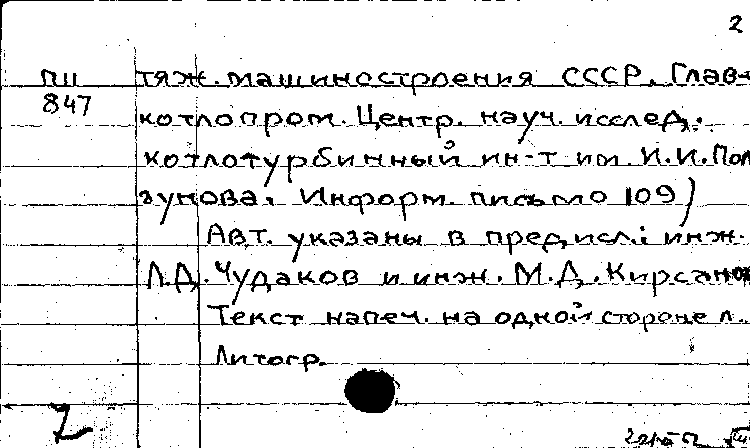 2
ПII тяж. машиностроения СССР. Глав-
847 котлопром. Центр. науч. исслед.
котлотурбинный ин-т им И.И.Пол
зунова. Информ. письмо 109)
Авт. указаны в предисл.: инж.
Л.Д. Чудаков и инж. М.Д. Кирсанов
Текст напеч. на одной стороне л.
Литогр.